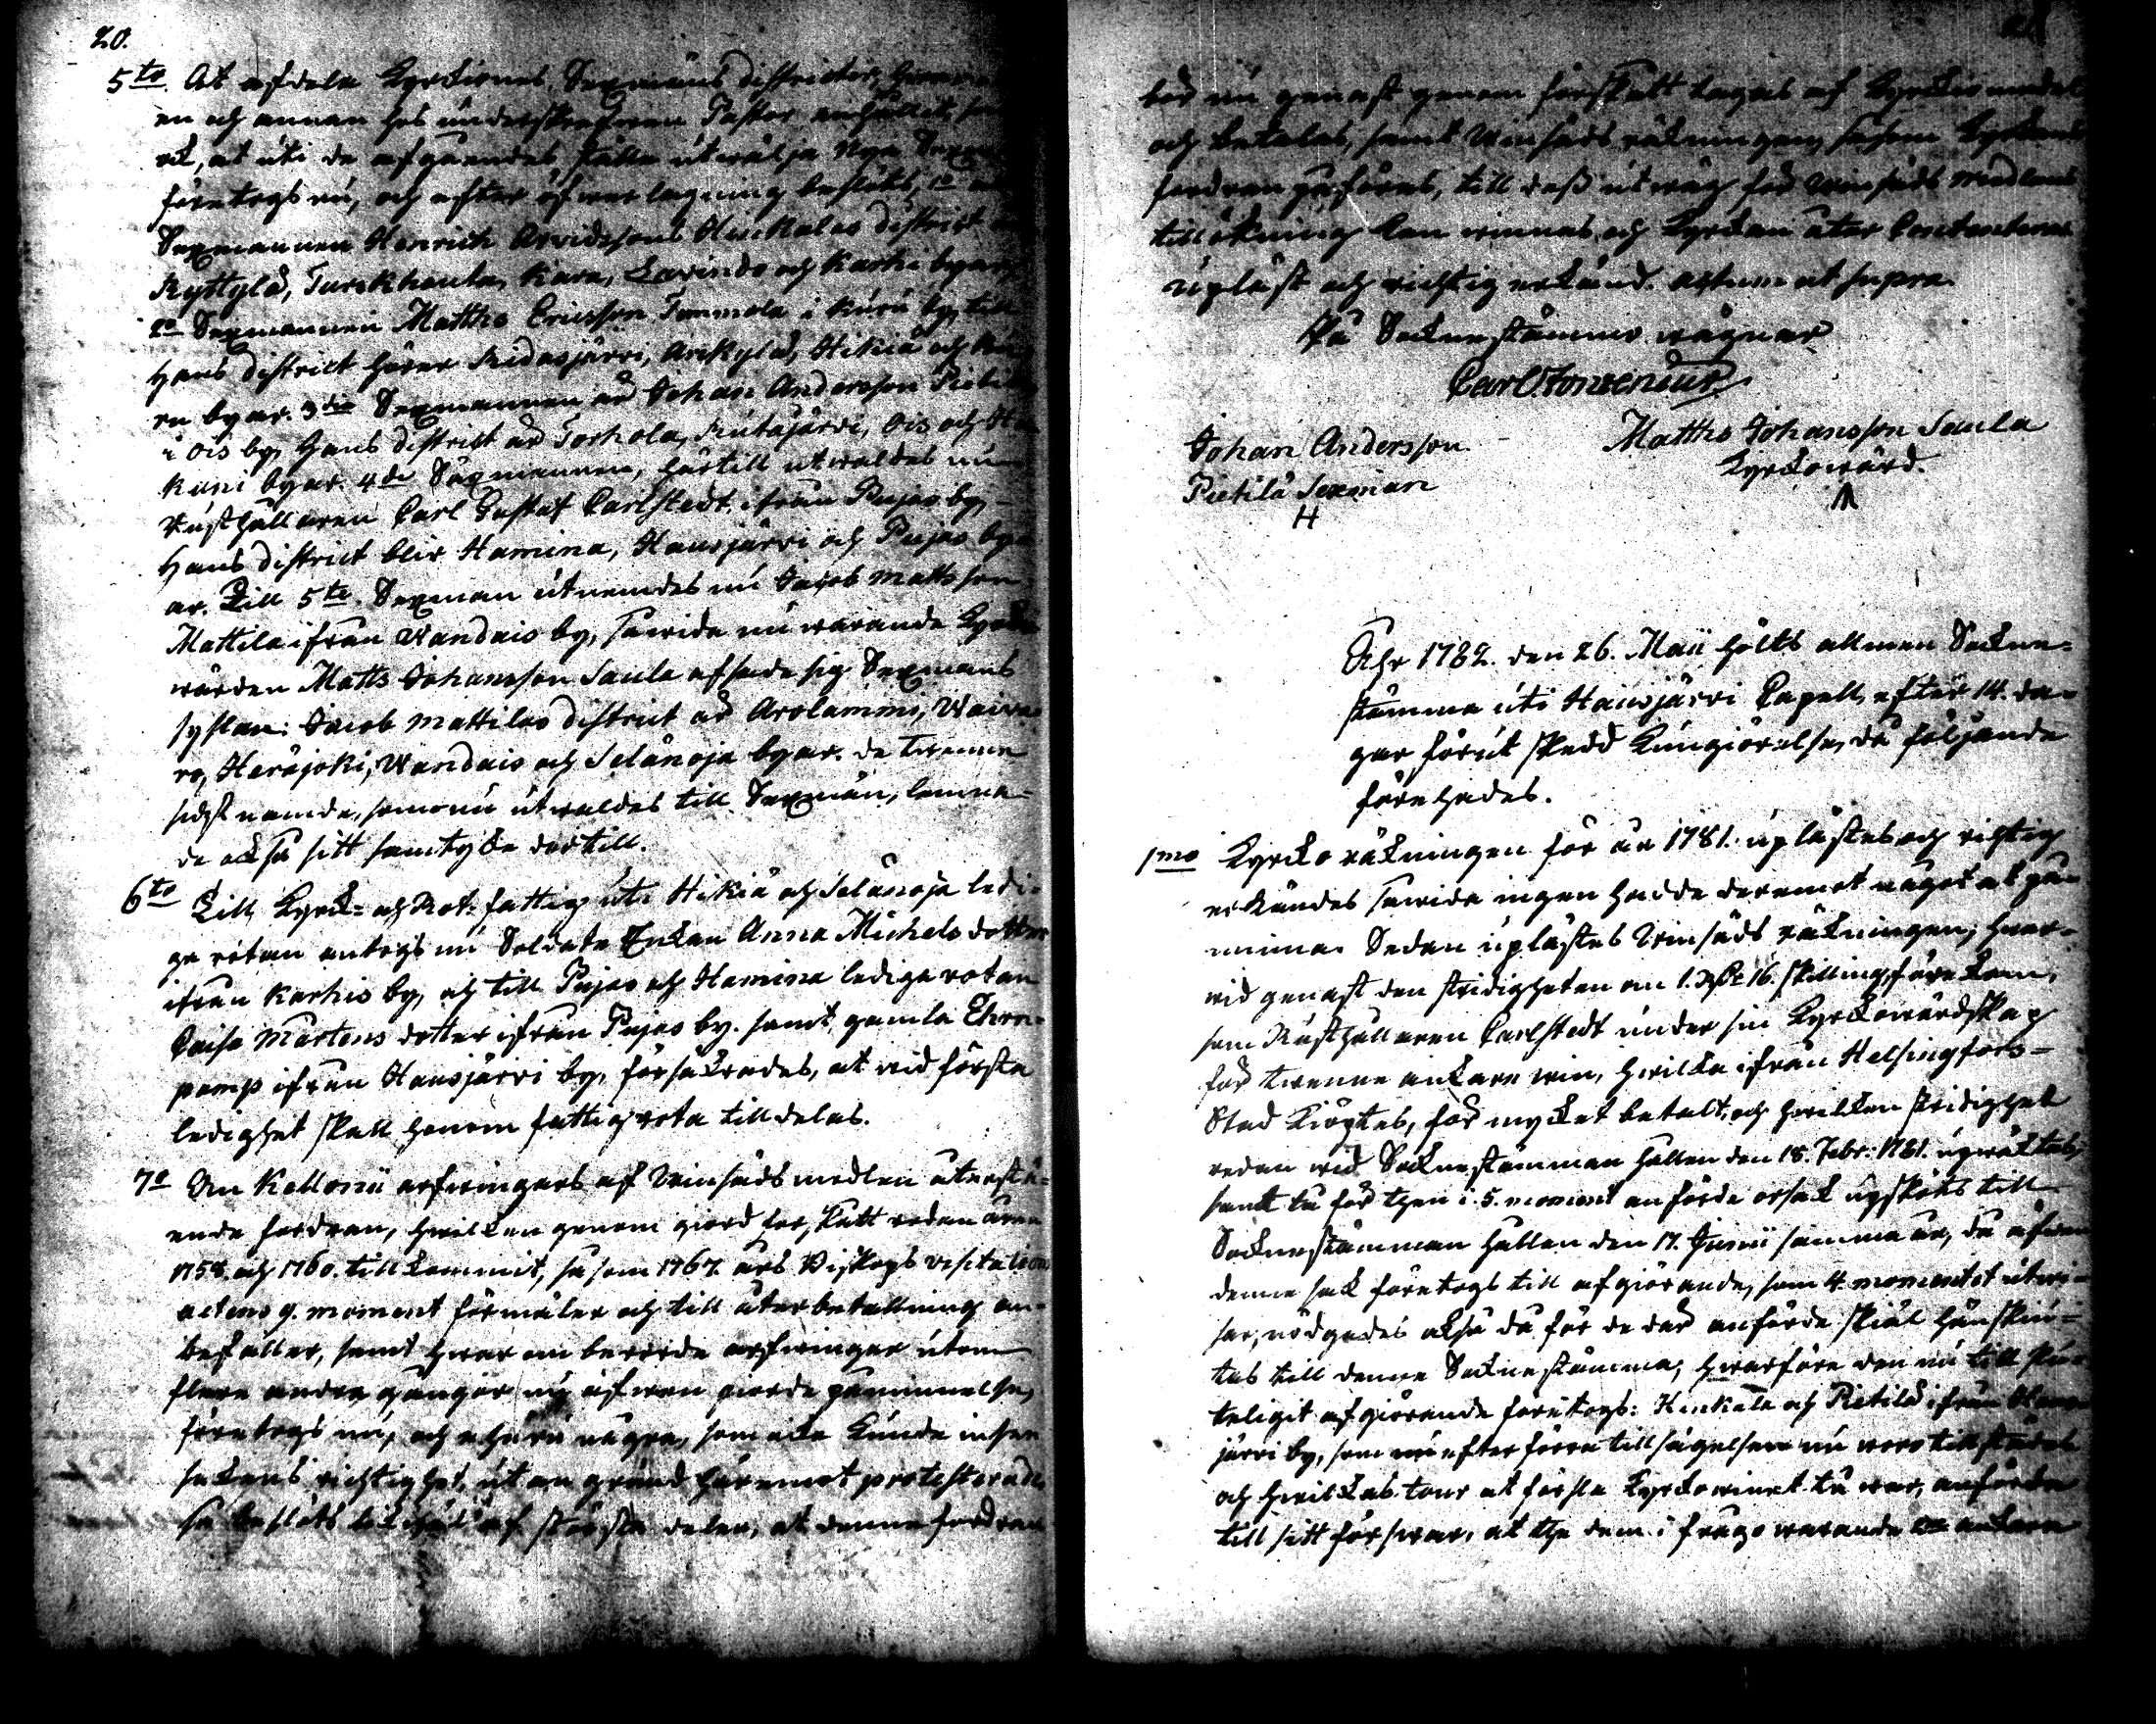 20.
5to. At afdela Kyrckiones Sexmäns districter, hwarom
en och annan hos underskrefwen Pastor anhållit, sam
ok, at uti de afgåendes ställe utwälja nya Sexmän
företogs nu, och efter öfwerlagning beslöts, 1o at
Sexmannen Henrich Arvidssons Hinkalas district är
Ryttylä, Turckhauta, Kara, Lavindo och Karhi byar,
2o Sexmannen Matths Ericsson Tommola i Kuru by, till
Hans district hörer Ridasjärvi, Erkylä, Hikiä och Ku-
ru byar. 3tio Sexmannen är Johan Andersson Pietilä
i Ois by, Hans district är Torhola, Rutajärvi, Ois och
kuni byar. 4de Säxmannen, härtill utwaldes nu
Rusthållaren Carl Gustaf Carlstedt ifrån Pujas by,
Hans district blir Hamina, Hausjärvi och Pujas by-
ar. Till 5te. Sexman utnemdes nu Jacob Mattsson
Mattila ifrån Wandais by, sawida nu warande Kyrcko-
wärden Matts Johansson Saula afsade sig Sexmans
syslan: Jacob Mattilas district är Arolammi, Waiwa-
ro, Heräjoki, Wandais och Selänoja byar. De twenne
sidst namde, som nu utwaldes till Sexmän, lemna-
de också sitt samtycke dertill.
6to Till Kyrck- och Rot-fattig uti Hikiä och Selänoja ledi-
ge rotan antogs nu Soldate Enkan Anna Michels dotter
ifrån Karhis by, och till Pujas och Hamina ledige rotan
Caisa Mårtens dotter ifrån Pujas by. samt gamla Ehrn-
pamp ifrån Hausjärvi by, försäkrades, at wid första
ledighet skall honom fattig rota tilldelas.
7o Om Kellonii arfwingars af Winsäds medlen återstå-
ende fordran, hwilken genom giord förskått redan åren
1758. och 1760. tillkommit, så som 1767. års Biskops visitations
actens 9. moment förmäler och till återbetallning an-
befaller, samt hwarom berörde arfwingar utom
flere andre gångor nu äfwen giorde påminnelse,
företogs nu, och ehuru några, som icke kunde inse
sakens richtighet, utan grund häremot protesterade
så beslöts likwäl af största delen, at denne fordran
bör nu genast genom förskått tagas af Kyrckio medel
och betalas, samt Winsäds räkningen, såsom Kyrckans
fordran påföres, till dess utwäg för winsäds medlens
tillökning kan winnas och Kyrckan åter contenteras
upläst och richtig erkänd. actum ut supra.
På Socknestämmo wägnar
Carl Fonzenius
Johan Andersson
Pietilä Sexman
H
Matths Johansson Saula
Kyrckowärd.
Åhr 1782. den 26. Maii hölts allmen Sockne-
stämma uti Hausjärvi Capell, efter 14. da-
gar förut skedd Kungiörelse, då följande
förehades.
1mo Kyrcko räkningen för år 1781. uplästes och richtig
erkändes sawida ingen hadde deremot något at på-
minna. Sedan uplästes Winsäds räkningen, hwar-
wid genast den stridigheten om 1. Rdr 16. skilling förekom,
som Rusthållaren Carlstedt under sin Kyrckowärdskap
för twenne ankare win, hwilka ifrån Helsingfors-
Stad Kiöptes, för mycket betalt, och hwilken stridighet
redan wid Socknestämman hållen den 18. Febr: 1781. upwäktes,
samt då för then i 5. moment anförde orsak upsköts till
Socknestämman hållen den 17. Junii samma år, då äfwen
denne sak företogs till afgiörande, som 4. momentet utwi-
sar, nödgades också då för de der anförde skiäl hänskiu-
tas till denne Socknestämma, hwarföre den nu till slu-
teligit afgiörande företogs: Hinkala och Pietilä ifrån Haus-
järvi by, som nu efter förra tillsägelsen nu woro tillstädes
och hwilkas tour at forsla Kyrckowinet då war, anförde
till sitt förswar, at the dem i frågo warande ankare